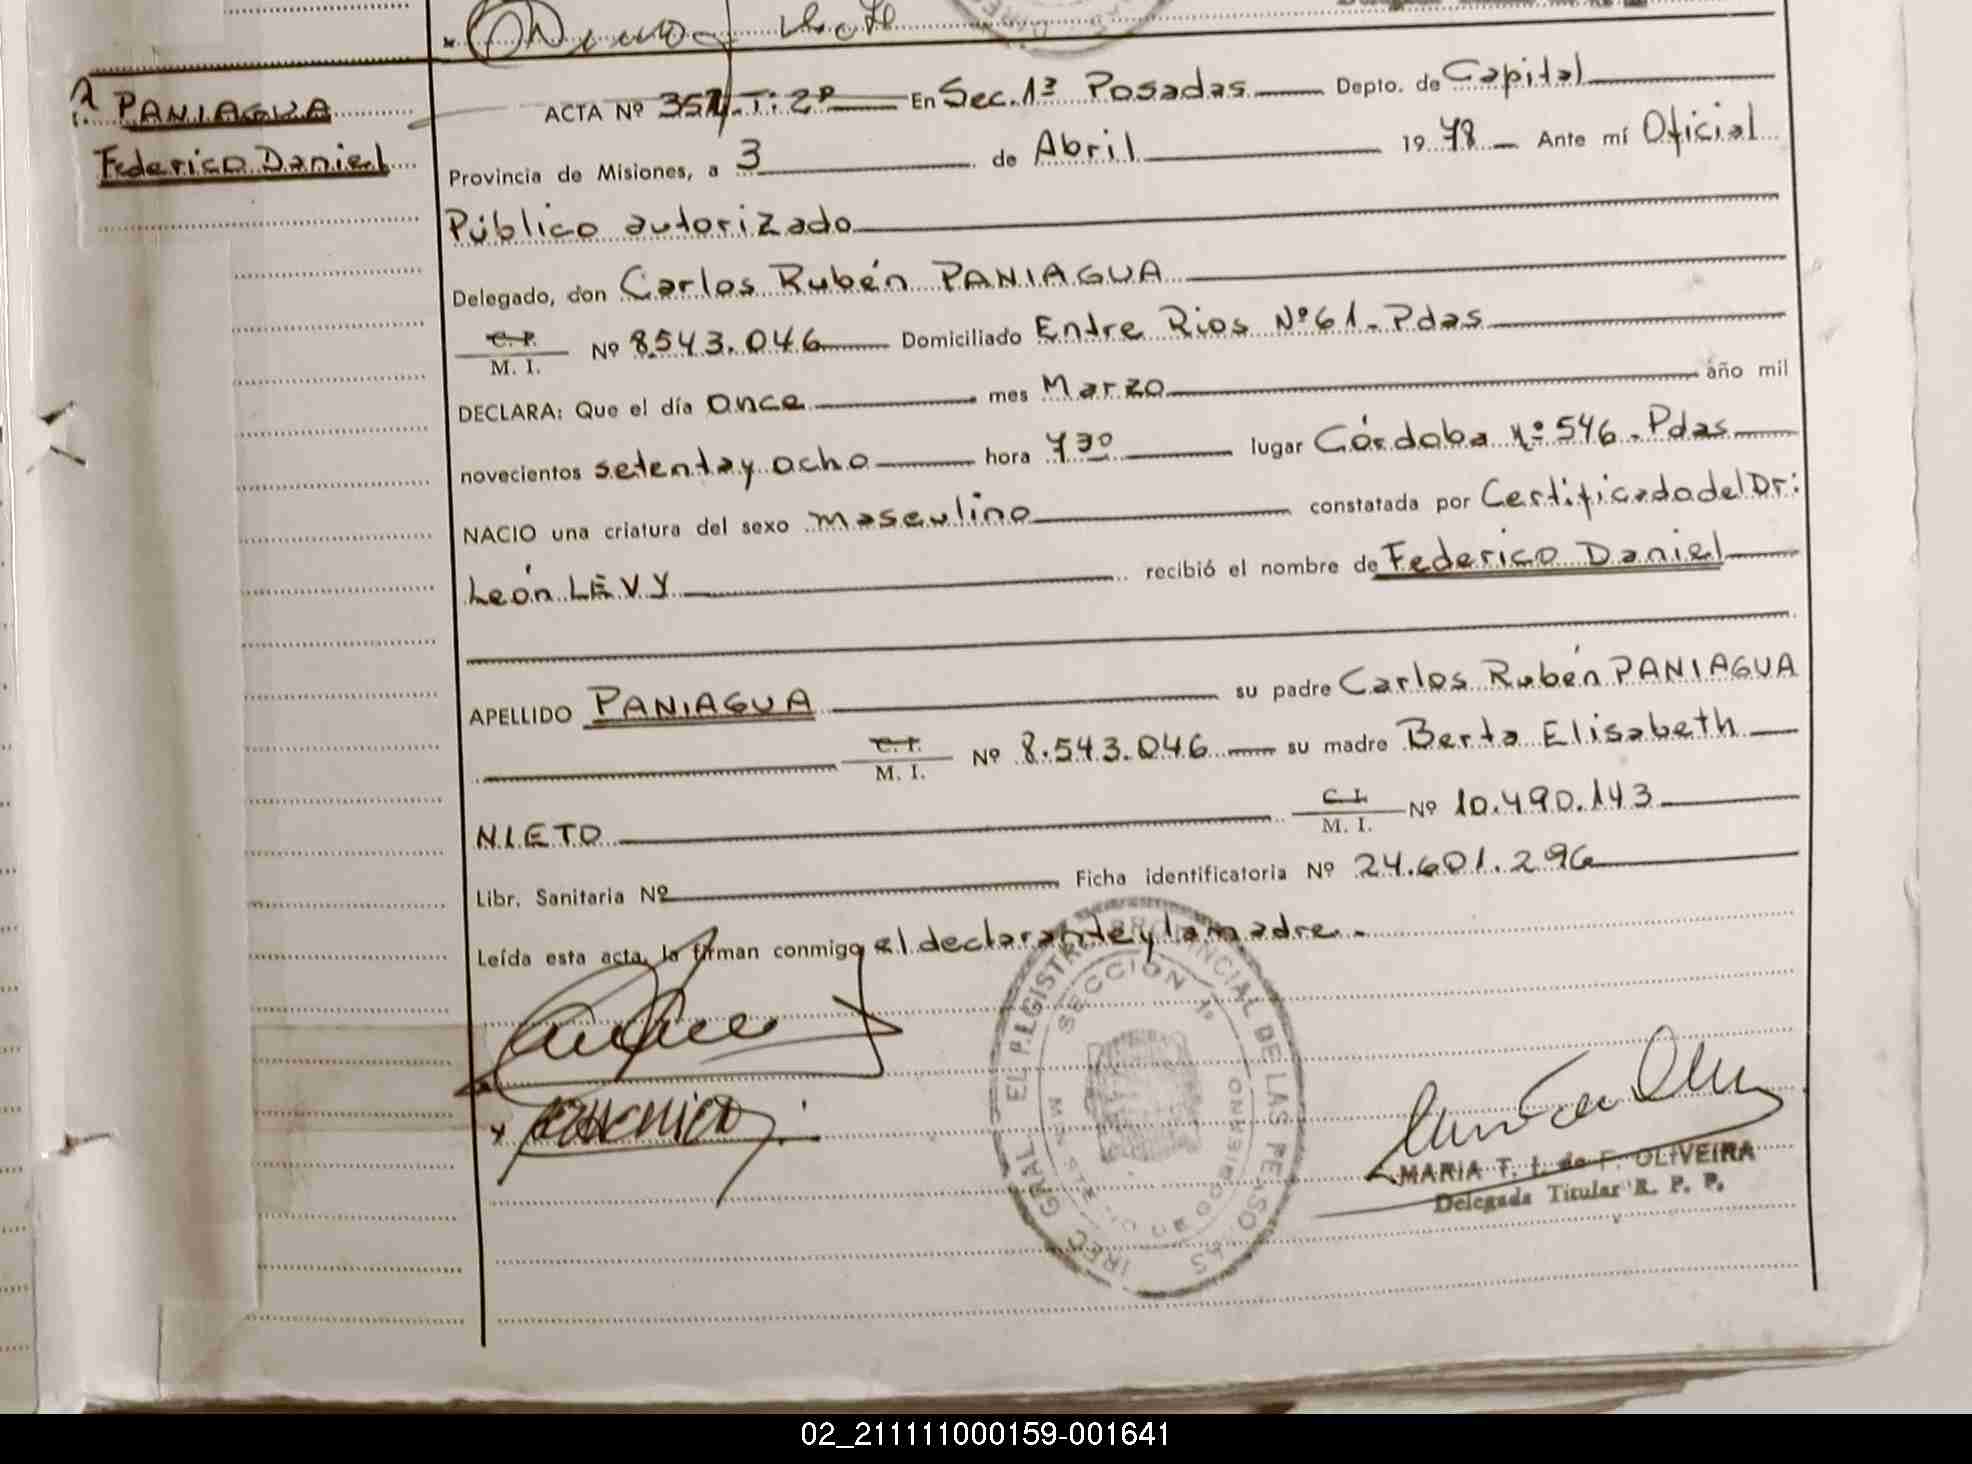 PANIAGUA
Federico Daniel
ACTA Nº 357-T:2º En Sec.1ª Posadas Depto. de Capital
Provincia de Misiones, a 3 de Abril 1978 Ante mí Oficial
Público autorizado
Delegado, don Carlos Rubén PANIAGUA
C.I. M. I. Nº 8.543.046 Domiciliado Entre Rios Nº61-Pdas
DECLARA: Que el día once mes Marzo año mil
novecientos setenta y ocho hora 730 lugar Córdoba Nº 546-Pdas
NACIO una criatura del sexo masculino constatada por Certificado del Dr:
León LEVY recibió el nombre de Federico Daniel
APELLIDO PANIAGUA su padre Carlos Rubén PANIAGUA
C.I. M. I. Nº 8.543.046 su madre Berta Elisabeth
NIETO C.I. M. I. Nº 10.490.143
Libr. Sanitaria Nº Ficha identificatoria Nº 24.601.296
Leída esta acta, la firman conmigo el declarante y la madre.-
REGISTRO PROVINCIAL DE LAS PERSONAS
SECCION 1º
MARIA T. I. de F. OLIVEIRA
Delegada Titular R. P. P.
02_211111000159-001641